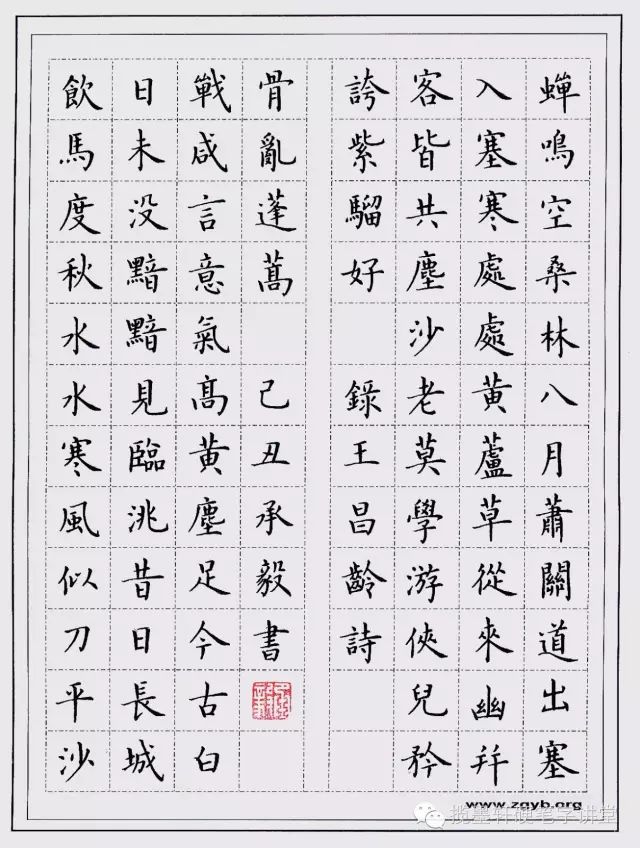 蟬鳴空桑林八月蕭關道出塞
入塞寒處處黄蘆草從來幽并
客皆共塵沙老莫學游俠兒矜
誇紫騮好
錄王昌齡詩
飲馬度秋水水寒風似刀平沙
日未没黯黯見臨洮昔日長城
戰咸言意氣高黄塵足今古白
骨亂蓬蒿
己丑承毅書
www.zgyb.org
揽墨轩硬笔字讲堂